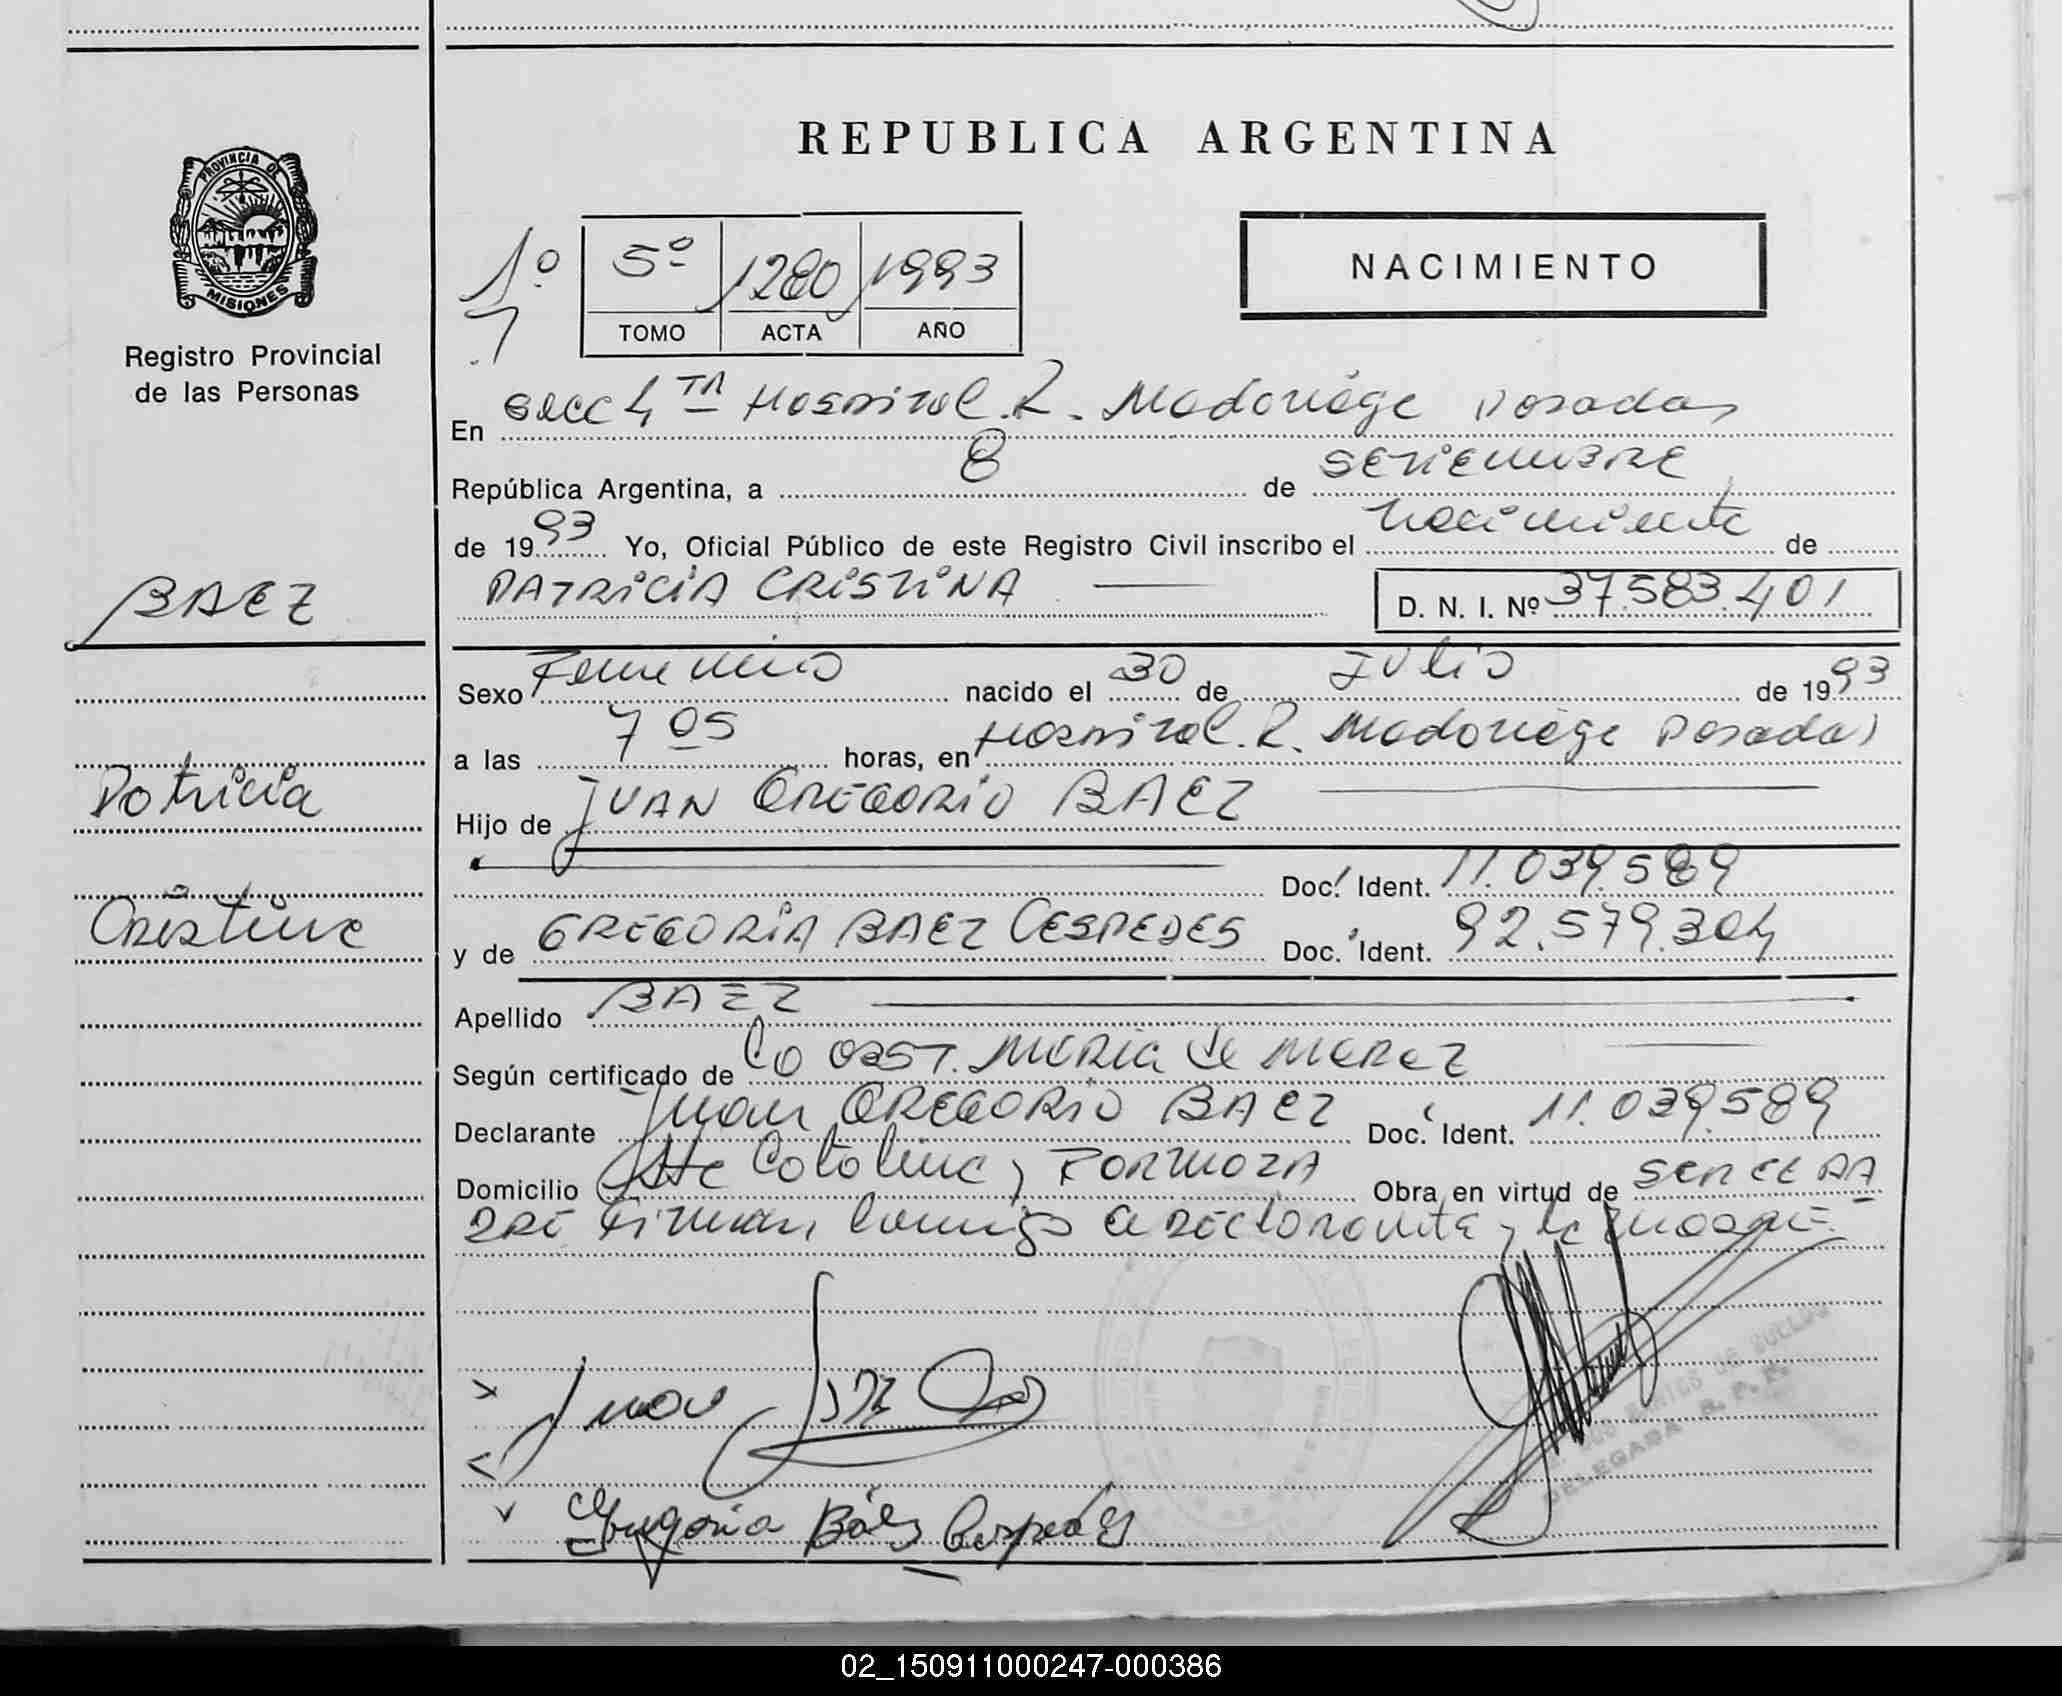 REPUBLICA ARGENTINA
PROVINCIA DE
MISIONES
Registro Provincial
de las Personas
1º 5º 1280 1993
TOMO ACTA AÑO
NACIMIENTO
En Secc 4 TA Hospital. R. Madariaga Posadas
República Argentina, a 8 de SETIEMBRE
de 1993 Yo, Oficial Público de este Registro Civil inscribo el nacimiento de
PATRICIA CRISTINA D. N. I. Nº 37.583.401
BAEZ
Sexo Femenino nacido el 30 de JULIO de 1993
a las 7 05 horas, en Hospital. R. Madariaga Posadas
Patricia
Hijo de JUAN GREGORIO BAEZ
Doc. Ident. 11.039.589
Cristina
y de GREGORIA BAEZ CESPEDES Doc. Ident. 92.579.304
Apellido BAEZ
Según certificado de OBST. MARIA de MEREZ
Declarante Juan GREGORIO BAEZ Doc. Ident. 11.039.589
Domicilio Sta Catalina y FORMOZA Obra en virtud de SER EL PA
DRE Firman conmigo el DECLARANTE y la MADRE.
Juan
Gregoria Báez Cespedes
DELEGADA R. P. P.
02_150911000247-000386